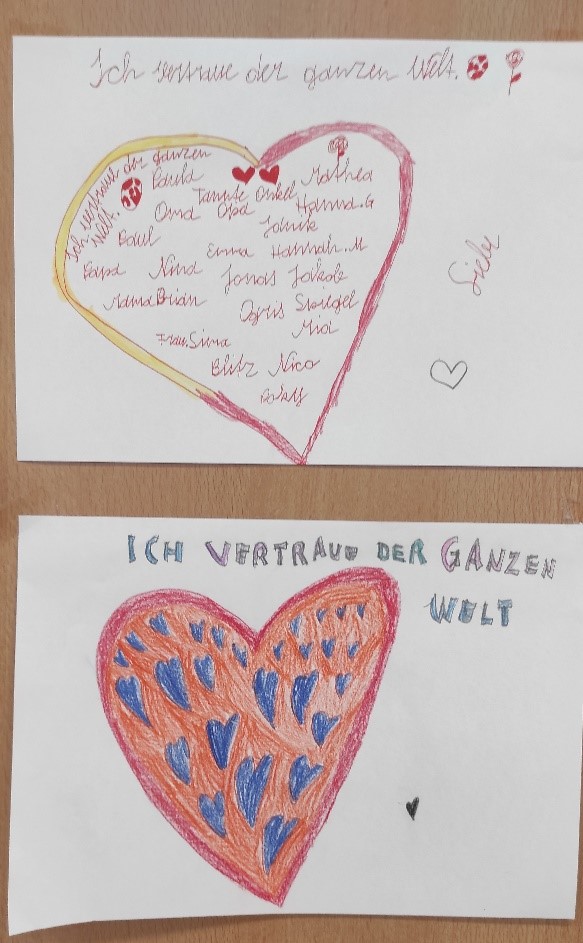 Ich vertraue der ganzen Welt.
Ich vertraue der ganzen
Welt.
Paula
Mathea
Tannte Onkel
Oma Opa Hanna.G
Janik
Paul
Emma Hannah.M
Papa Nina Jonas Jakob
Mama Brian
Spiegel
Mia
Frau.Sima
Blitz Nico
Liebe
ICH VERTRAUE DER GANZEN
WELT